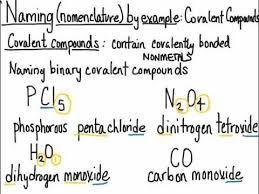 Naming (nomenclature) by example: Covalent Compounds
Covalent compounds: contain covalently bonded
NONMETALS
Naming binary covalent compounds
PCl5 N2O4
phosphorous pentachloride dinitrogen tetroxide
H2O1 CO
dihydrogen monoxide carbon monoxide